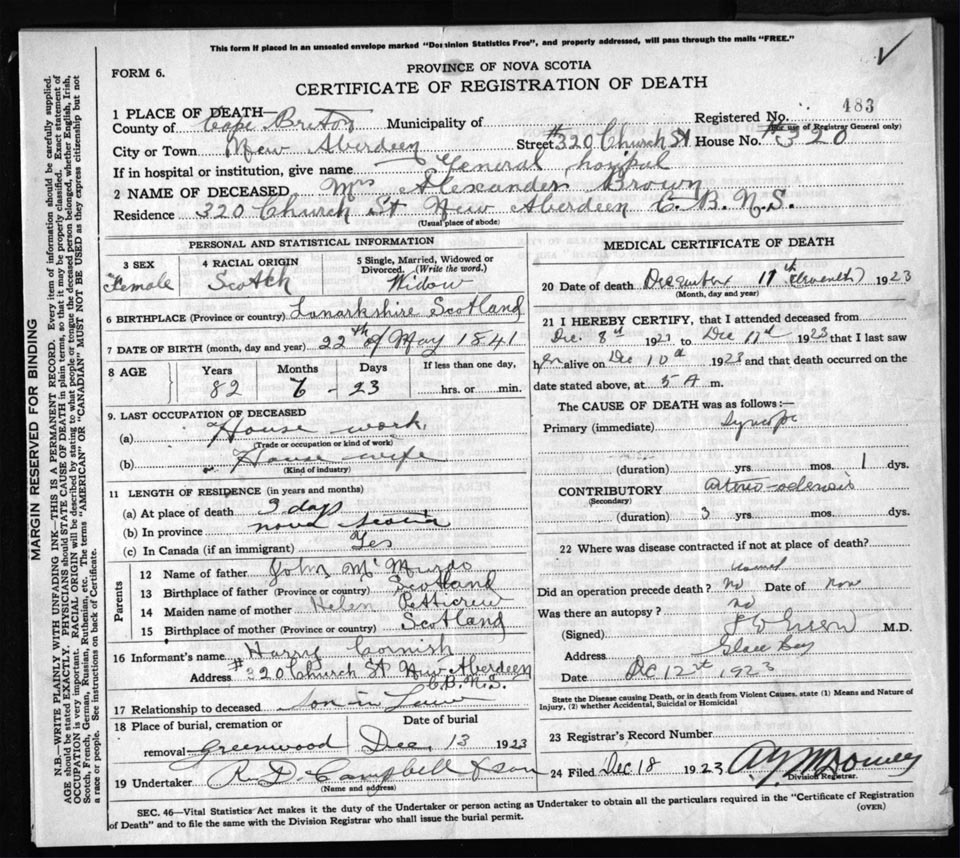 This form if placed in an unsealed envelope marked "Dominion Statistics Free", and properly addressed, will pass through the mails "FREE."
FORM 6.
PROVINCE OF NOVA SCOTIA
CERTIFICATE OF REGISTRATION OF DEATH
483
1 PLACE OF DEATH—
Registered No.
(For use of Registrar General only)
County of Cape Breton Municipality of
City or Town New Aberdeen Street #320 Church St House No. #320
If in hospital or institution, give name General hospital
2 NAME OF DECEASED Mrs Alexander Brown
Residence 320 Church St New Aberdeen C. B. N.S.
(Usual place of abode)
PERSONAL AND STATISTICAL INFORMATION
3 SEX 4 RACIAL ORIGIN 5 Single, Married, Widowed or Divorced. (Write the word.)
Female Scotch Widow
6 BIRTHPLACE (Province or country) Lanarkshire Scotland
7 DATE OF BIRTH (month, day and year) 22th of May 1841
8 AGE Years Months Days If less than one day,
82 6 - 23 hrs. or min.
9. LAST OCCUPATION OF DECEASED
(a) House work
(Trade or occupation or kind of work)
(b) House wife
(Kind of industry)
11 LENGTH OF RESIDENCE (in years and months)
(a) At place of death 3 days
(b) In province nova scotia
(c) In Canada (if an immigrant) Yes
Parents
12 Name of father John McMurdo
13 Birthplace of father (Province or country) Scotland
14 Maiden name of mother Helen Petticrew
15 Birthplace of mother (Province or country) Scotland
16 Informant's name Harry Cornish
Address #320 Church St New Aberdeen
C.B.N.S.
17 Relationship to deceased Son in Law
18 Place of burial, cremation or removal Greenwood
Date of burial Dec. 13 1923
19 Undertaker R. D. Campbell & son
(Name and address)
MEDICAL CERTIFICATE OF DEATH
20 Date of death December 11th (Eleventh) 1923
(Month, day and year)
21 I HEREBY CERTIFY, that I attended deceased from
Dec. 8th 1923 to Dec 11th 1923 that I last saw
her alive on Dec 10th 1923 and that death occurred on the
date stated above, at 5 A m.
The CAUSE OF DEATH was as follows:—
Primary (immediate) Syncope
(duration) yrs. mos. 1 dys.
CONTRIBUTORY
(Secondary)
(duration) 3 yrs. mos. dys.
22 Where was disease contracted if not at place of death?
Did an operation precede death? no Date of none
Was there an autopsy? no
(Signed) M.D.
Address Glace Bay
Date Dc 12st 1923
State the Disease causing Death, or in death from Violent Causes, state (1) Means and Nature of
Injury, (2) whether Accidental, Suicidal or Homicidal
23 Registrar's Record Number
24 Filed Dec 18 1923
Division Registrar.
SEC. 46—Vital Statistics Act makes it the duty of the Undertaker or person acting as Undertaker to obtain all the particulars required in the "Certificate of Registration
of Death" and to file the same with the Division Registrar who shall issue the burial permit.
(OVER)
MARGIN RESERVED FOR BINDING
N.B.—WRITE PLAINLY WITH UNFADING INK—THIS IS A PERMANENT RECORD. Every item of information should be carefully supplied.
AGE should be stated EXACTLY. PHYSICIANS should STATE CAUSE OF DEATH in plain terms, so that it may be properly classified. Exact statement of
OCCUPATION is very important. RACIAL ORIGIN will be described by stating to what people or tongue the deceased person belonged, whether English, Irish,
Scotch, French, German, Russian, Ruthenian, etc. The terms "AMERICAN" or "CANADIAN" MUST NOT BE USED as they express citizenship but not
a race or people. See instructions on back of Certificate.